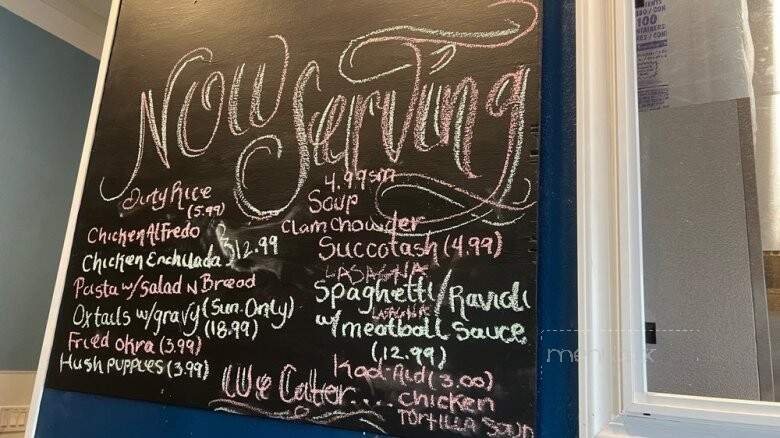 Now Serving
Dirty Rice
(5.99)
Chicken Alfredo
Chicken Enchilada
12.99
Pasta w/ Salad N Bread
Oxtails w/gravy (Sun. Only)
(18.99)
Fried Okra (3.99)
Hush Puppies (3.99)
4.99 sm
Soup
Clam Chowder
Succotash (4.99)
LASAGNA
Spaghetti/Ravioli
LASAGNA
w/ meatball Sauce
(12.99)
Kool-Aid (3.00)
We Cater....
Chicken
TORTILLA SOUP
100